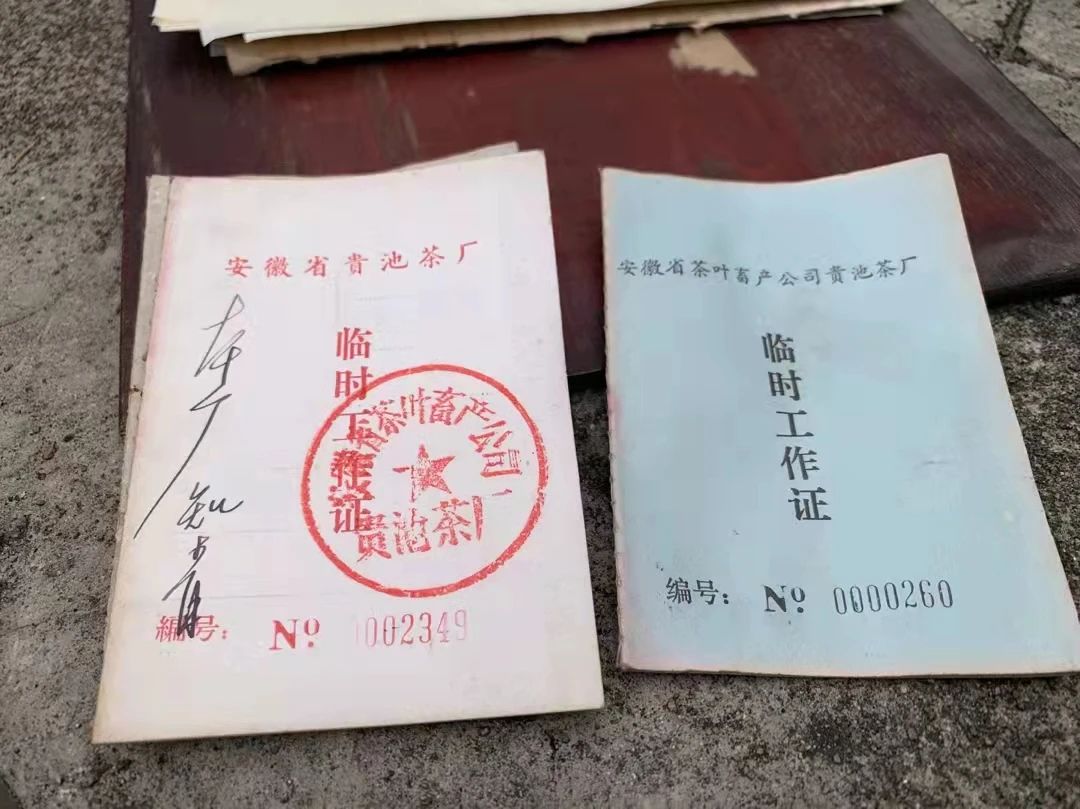 安徽省贵池茶厂
本厂知青
临时工作证
省茶叶畜产公司
贵池茶厂
編号: Nº 0002349
安徽省茶叶畜产公司贵池茶厂
临时工作证
编号: Nº 0000260